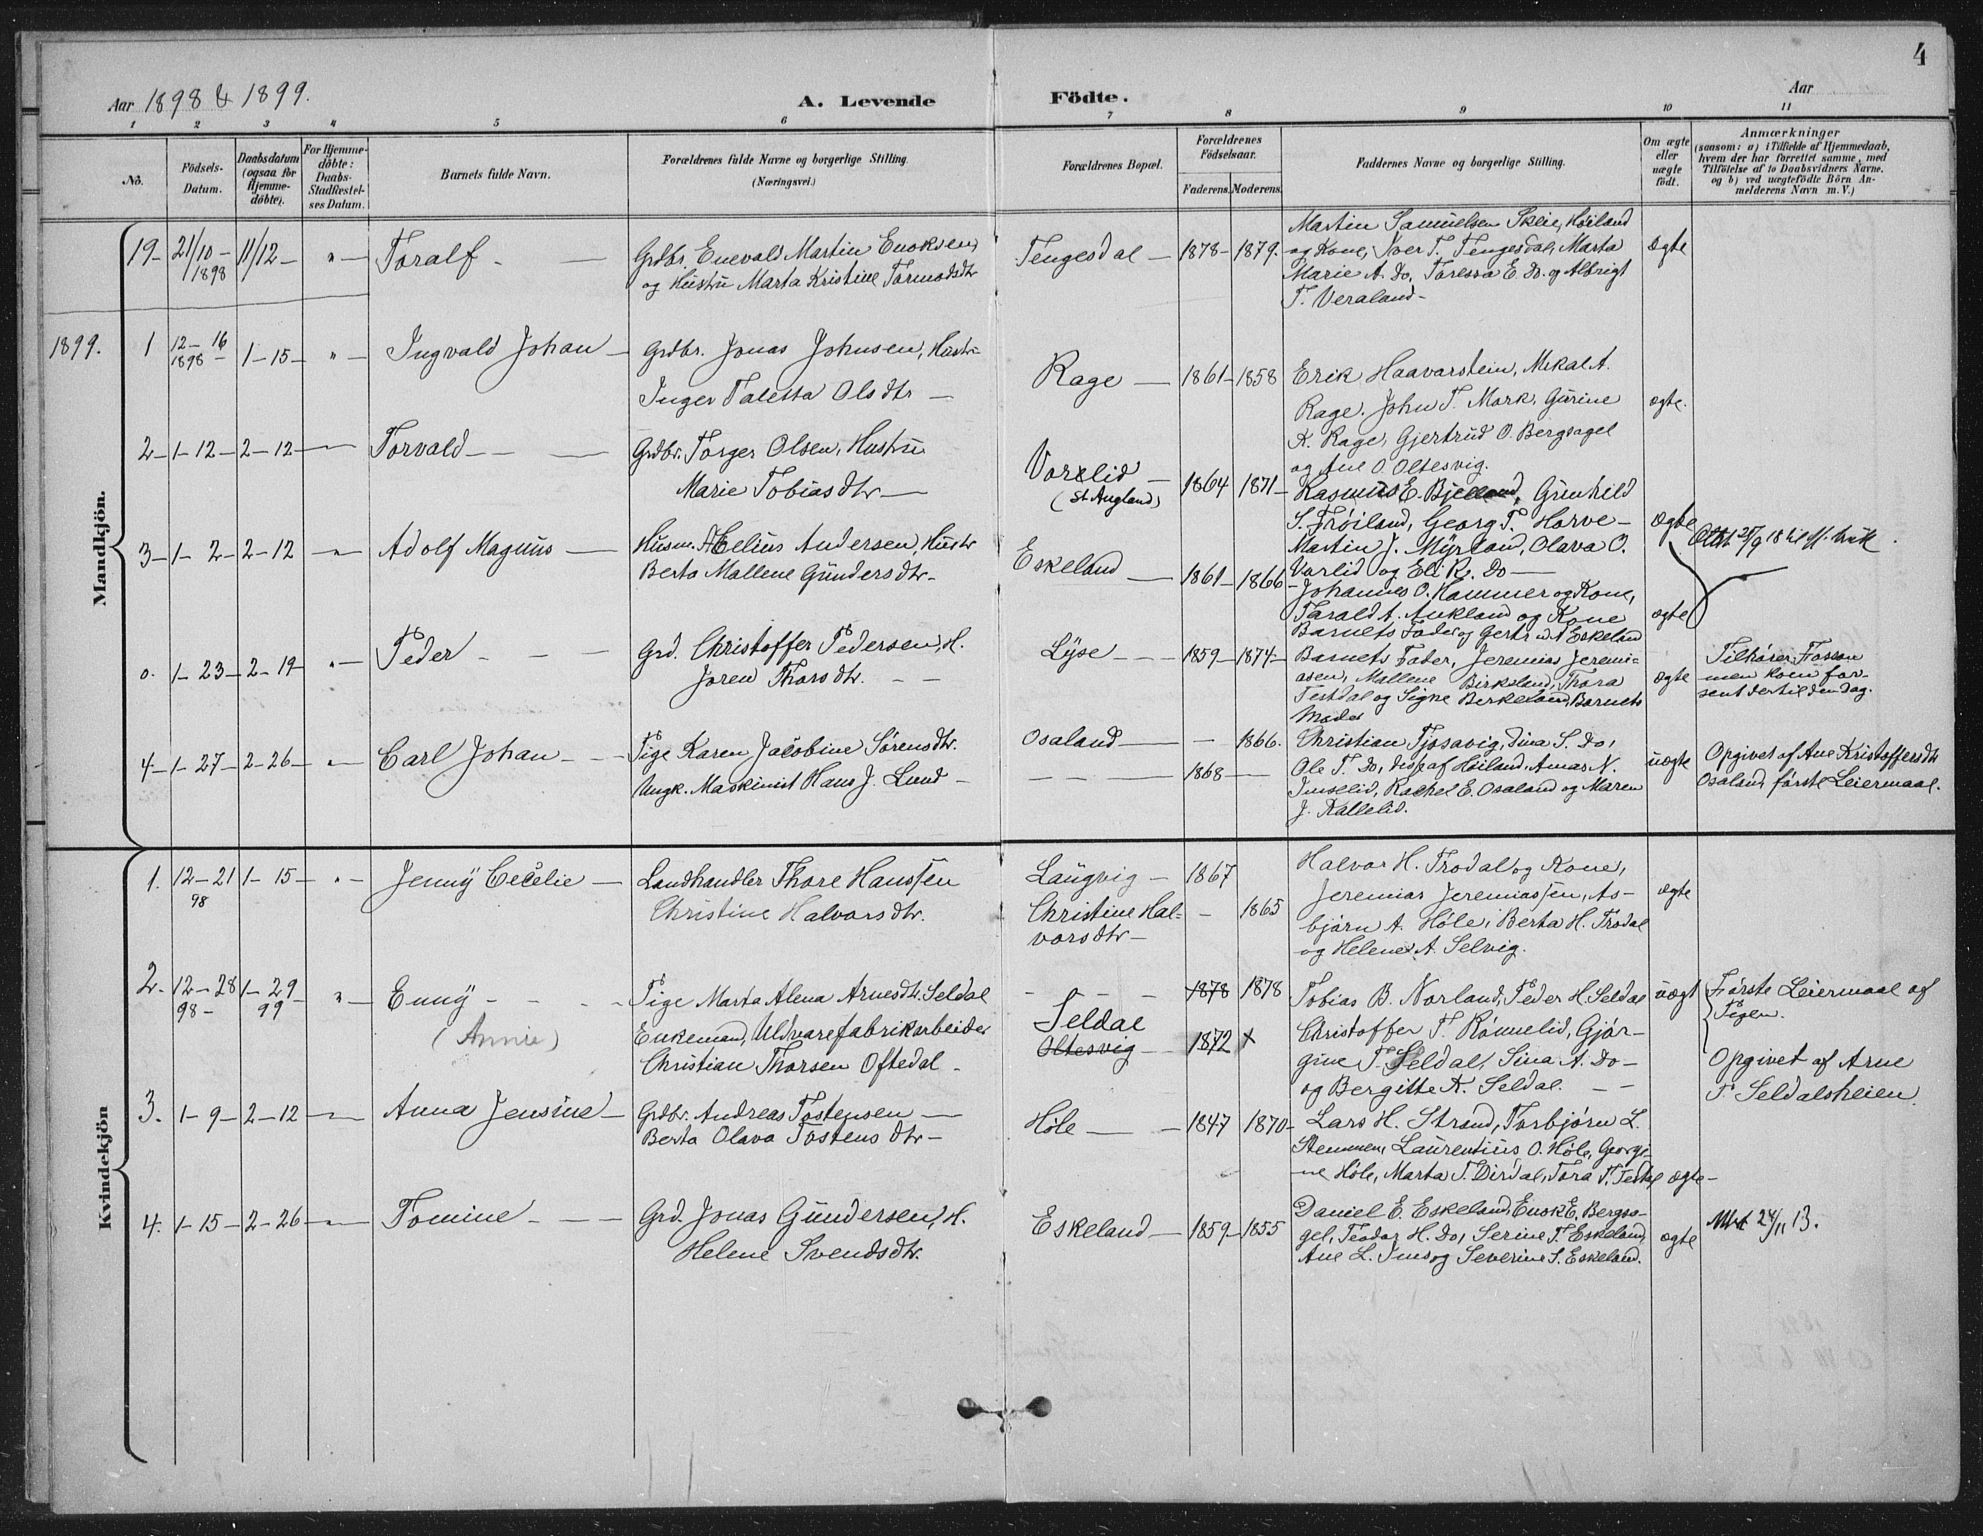 4
Aar 1898 & 1899.
A. Levende Födte.
Aar
1 2 3 4 5 6 7 8 9 10 11
No.
Födsels-Datum.
Daabsdatum (ogsaa for Hjemme-döbte).
For Hjemme-döbte: Daabs-Stadfæstel-ses Datum.
Barnets fulde Navn.
Forældrenes fulde Navne og borgerlige Stilling. (Næringsvei.)
Forældrenes Bopæl.
Forældrenes Födselsaar.
Faderens. Moderens.
Faddernes Navne og borgerlige Stilling.
Om ægte eller uægte födt.
Anmærkninger
(saasom: a) i Tilfælde af Hjemmedaab,
hvem der har forrettet samme, med
Tilföielse af to Daabsvidners Navne.
og b) ved uægtefödte Börn An-
melderens Navn m. V.)
Mandkjön.
19 - 21/10 - 1898 11/12 - " - Toralf - -
Grdbr. Enevald Martin Enoksen,
og Hustru Marta Kristine Tormodsdtr
Tengesdal - 1878 - 1879.
Martin Samuelsen Skeie, Høiland
og Kone, Iver T. Tengesdal, Marta
Marie A. Do, Taressa E. Do. og Albrigt
T. Veraland -
ægte
1899.
1 12 - 16 1898 - 1 - 15 - " - Ingvald Johan -
Grdbr. Jonas Johnsen, Hustr.
Inger Taletta Olsdtr -
Rage - 1861 - 1858
Erik Haavarstein, Mikal A.
Rage. John T. Mark, Gurine
K. Rage, Gjertrud O. Bergsagel
og Ane O. Oltesvig.
ægte.
2 - 1 - 12 - 2 - 12 - Torvald - -
Grdbr. Torger Olsen, Hustru
Marie Tobiasdtr -
Vorlid -
(St. Augland)
1864 1871 -
Rasmus E. Bjelland, Gunhild
S. Frøiland, Georg T. Horve -
Martin J. Myrland, Olava O.
Varlid og Eli R. Do -
ægte
3 - 1 - 2 - 2 - 12 - " - Adolf Magnus -
Husm. Æelius Andersen, Hustr
Berta Mallene Gundersdtr -
Eskeland - 1861 - 1866
Johannes O. Hammer og Kone,
Tarald A. Aukland og Kone
Barnets Fader og Gertrud A Eskeland
ægte
0. 1 - 23 - 2 - 19 - " - Peder - - -
Grd. Christoffer Pedersen, H.
Joren Thorsdtr. - -
Lyse - - - 1859 - 1874 -
Barnets Fader, Jeremias Jeremi-
asen, Mallene Birkeland, Thora
Testdal og Signe Berkeland, Barnets
Moder
ægte
Tilhører Fossan
men kom for-
sent dertil den dag.
4 - 1 - 27 - 2 - 26 - " - Carl Johan - -
Pige Karen Jacobine Sørensdtr.
Ungk. Maskinist Hans J. Lund -
Osaland - - 1866.
- - - - 1868 -
Christian Tjosavig, Dina S. Do,
Ole T. Do, disse af Høiland, Amas N.
Imselid, Rachel E. Osaland og Maren
J. Kallelid.
uægte
Opgivet af Ane Kristoffersdtr
Osaland, første Leiermaal.
Kvindekjön
1. 12 - 21 98 1 - 15 - " - Jenny Cecelie -
Landhandler Thore Hanssen
Christine Halvorsdtr.
Laugvig - 1867
Christine Hal-
vorsdtr -
- 1865
Halvor H. Trodal og Kone,
Jeremias Jeremiassen, As-
bjørn A. Høle, Berta H. Trodal
og Helene A. Selvig.
ægte
2. 12 - 28 98 - 1 - 29 99 - " - Enny - - -
(Annie)
Pige Marta Alena Arnesdtr. Seldal
Enkemand, Uldvarefabrikarbeider
Christian Thorsen Oftedal -
- - - 1878 1878
Seldal
Oltesvig - 1872 x
Tobias B. Norland, Peder H. Seldal
Christoffer T. Rønnelid, Gjør-
gine T. Seldal, Sina A. Do -
og Bergitte K. Seldal. - -
uægt
Første Leiermaal af
Pigen.
Opgivet af Arne
P. Seldalsheien.
3. 1 - 9 - 2 - 12 - Anna Jensine -
Grdbr. Andreas Tostensen -
Berta Olava Tostensdtr -
Høle - - 1847 1870 -
Lars H. Strand, Torbjørn L.
Stemmen, Laurentius O. Høle, Georgi-
ne Høle, Marta T. Dirdal, Tora T. Testdal
ægte -
4. 1 - 15 - 2 - 26 - Tomine - - -
Grd. Jonas Gundersen, H.
Helene Svendsdtr.
Eskeland - 1859 - 1855
Daniel E. Eskeland, Enok E. Bergsa-
gel, Teodor H. Do, Serine T. Eskeland,
Ane L. Ims og Severine S. Eskeland.
ægte
Utst 24/11 13.